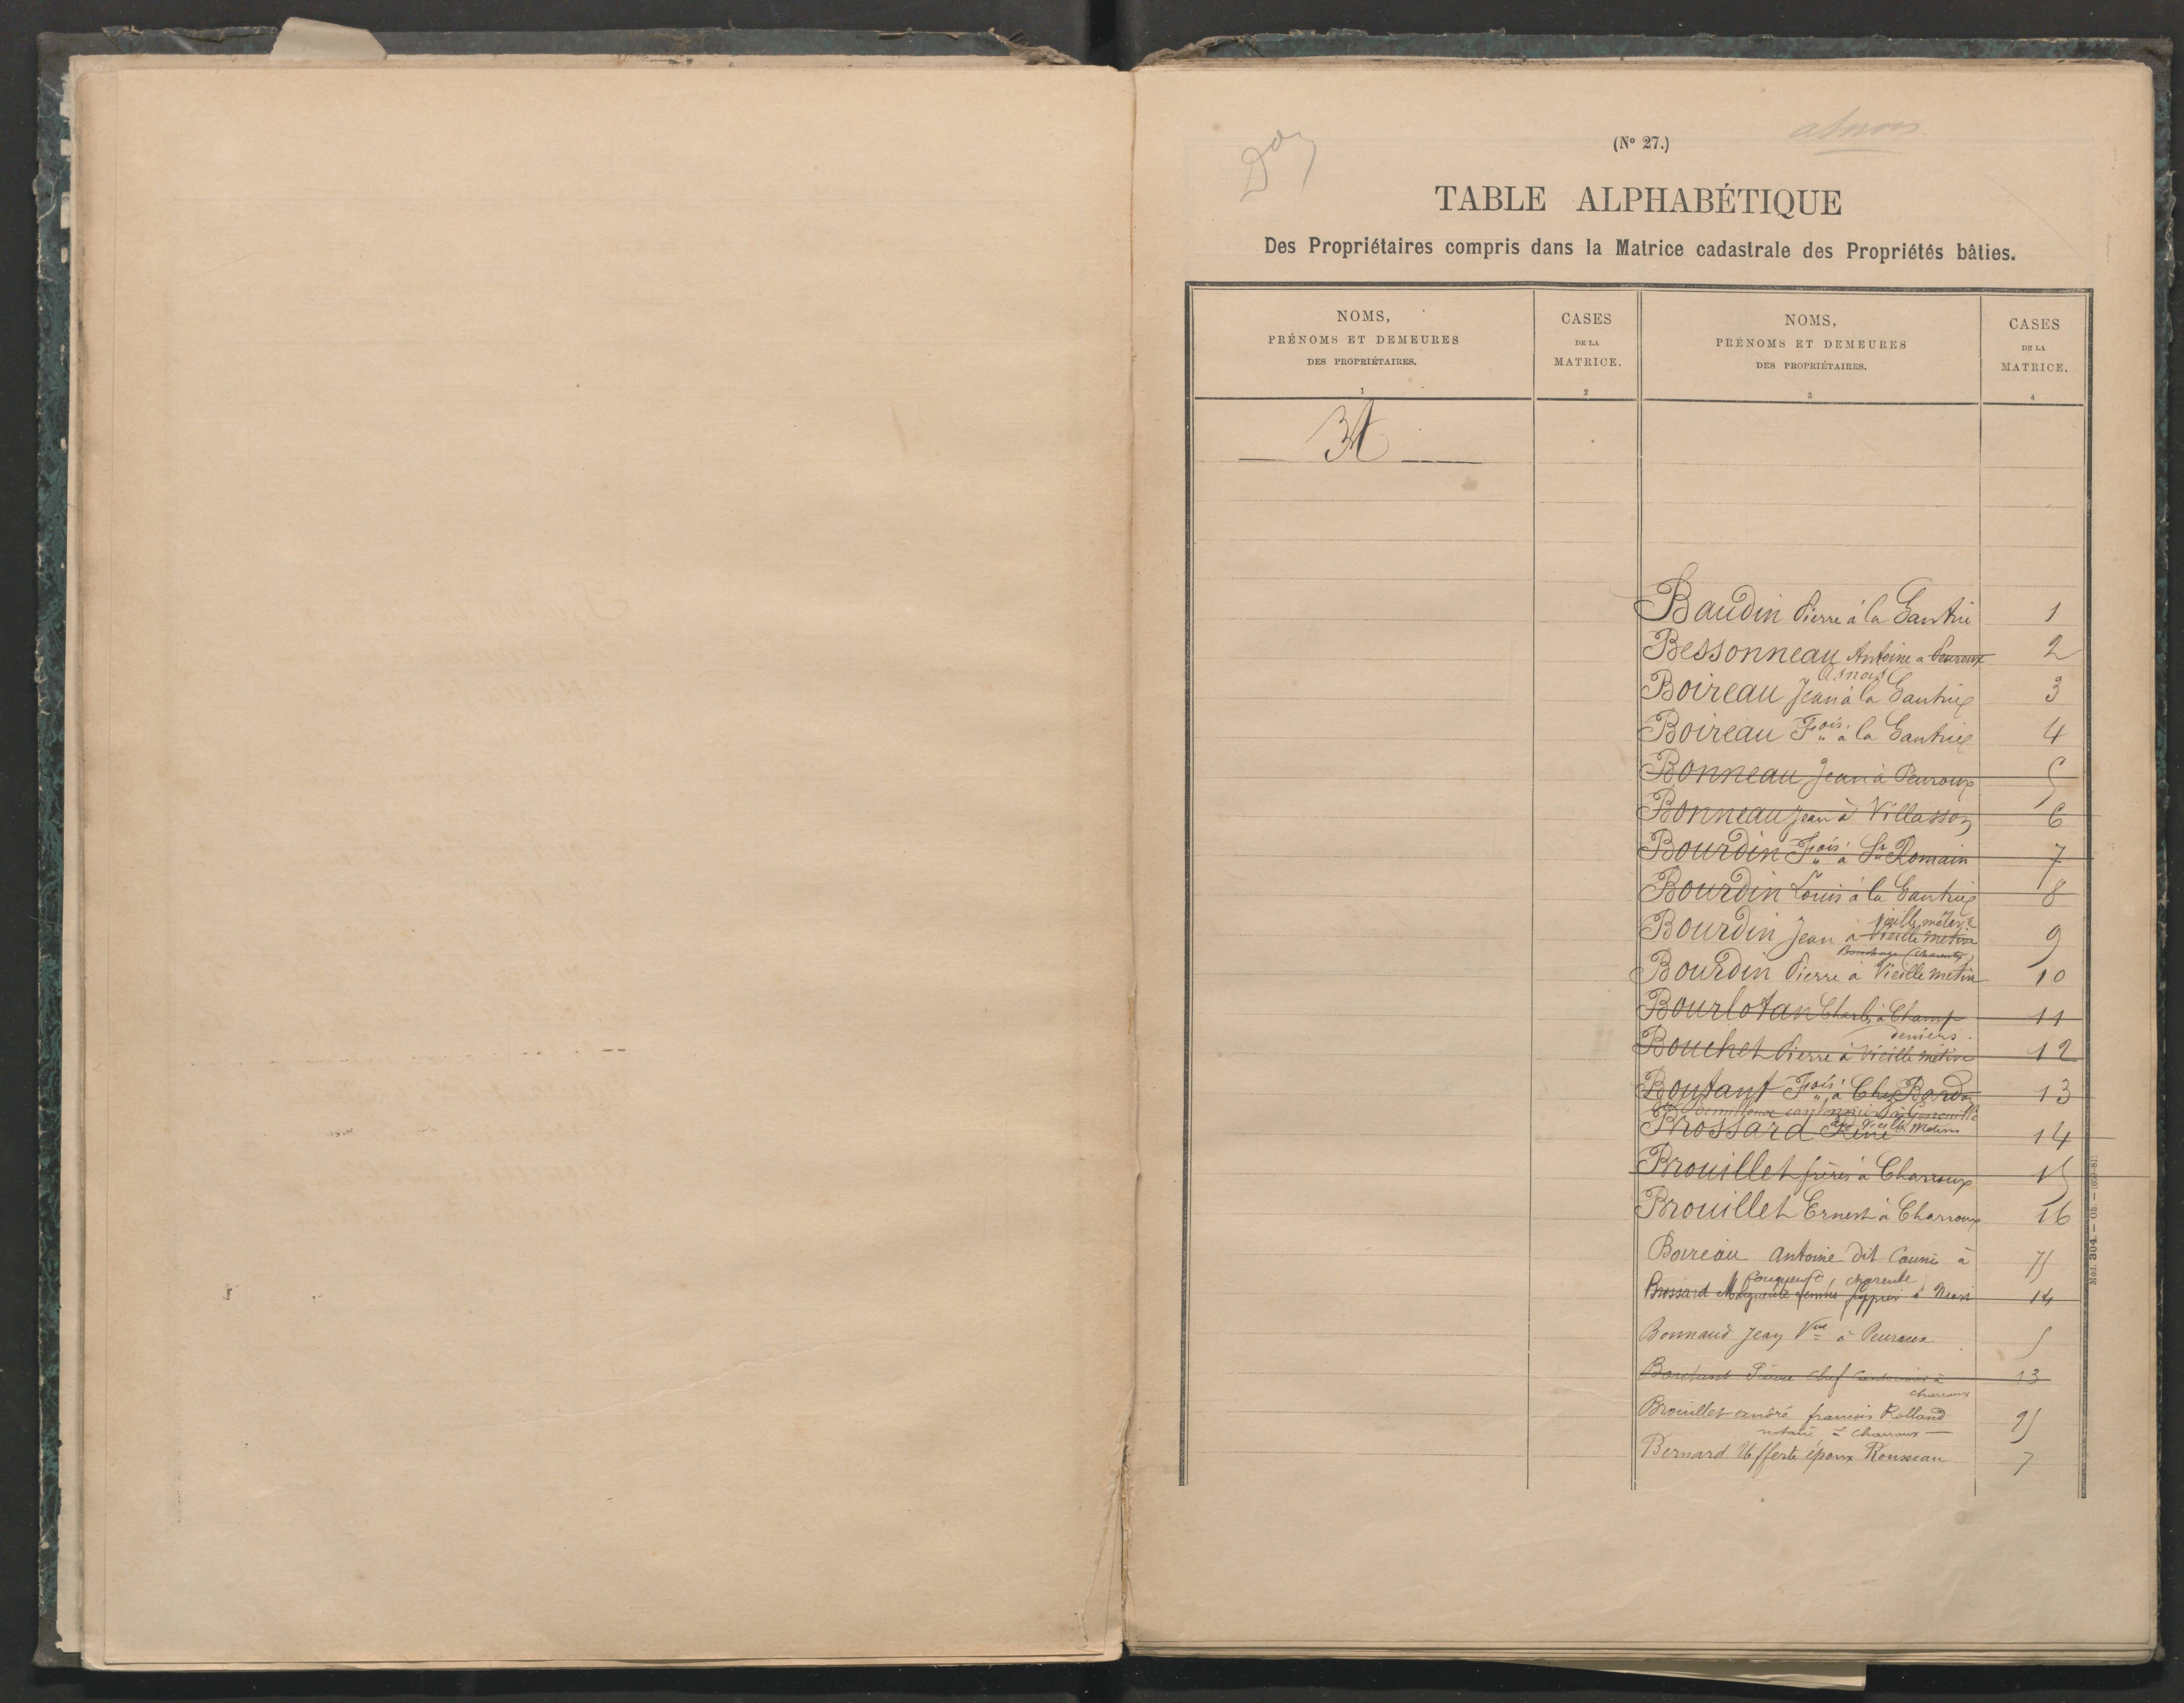 (Nº 27.)
asnois
TABLE ALPHABÉTIQUE
Des Propriétaires compris dans la Matrice cadastrale des Propriétés bâties.
NOMS, PRÉNOMS ET DEMEURES DES PROPRIÉTAIRES.
CASES DE LA MATRICE.
NOMS, PRÉNOMS ET DEMEURES DES PROPRIÉTAIRES.
CASES DE LA MATRICE.
1 2 3 4
Baudin Pierre à la Gautrie 1
Bessonneau Antoine a Peuroux 2
Asnois
Boireau Jean à la Gautrie 3
Boireau Fois. à la Gautrie 4
Bonneau Jean à Peuroux 5
Bonneau Jean à Villasson 6
Bourdin Fois. à St Romain 7
Bourdin Louis à la Gautrie 8
Bourdin Jean à Vieille métive 9
Bourdin Pierre à Vieille métive 10
Bourlotan Charles à Champ 11
deniers.
Bouchet Pierre à Vieille métive 12
Boutant Fois. à Chez Bardon 13
Brossard René Vieille Métive 14
Brouillet frères à Charroux 15
Brouillet Ernest à Charroux 16
Boireau Antoine dit Caunié à 75
charente
Brossard Marguerite femme à 14
Bonnaud Jean Vve à Peuroux 5
Boutant Pierre chef cantonnier à 13
charroux
Brouillet andré francois Rolland 95
notaire à Charroux
Bernard époux Rousseau 7
Mod. 304.